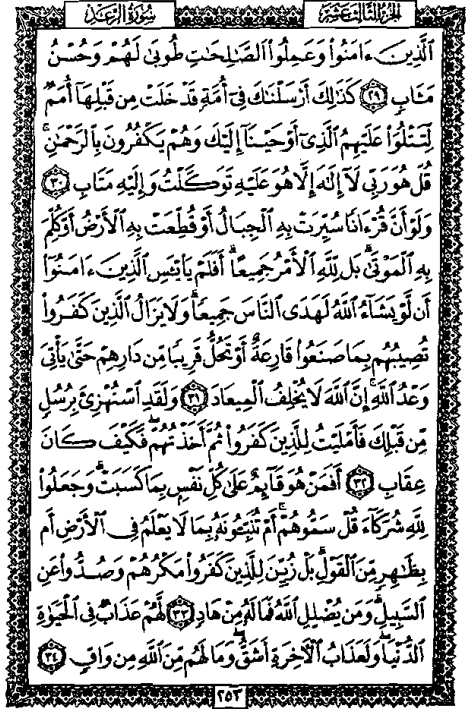 سُورَةُ الرَّعْدِ
الجُزْءُ الثَّالِثَ عَشَرَ
ٱلَّذِينَ ءَامَنُوا۟ وَعَمِلُوا۟ ٱلصَّٰلِحَٰتِ طُوبَىٰ لَهُمْ وَحُسْنُ
مَـَٔابٍ ٢٩ كَذَٰلِكَ أَرْسَلْنَٰكَ فِىٓ أُمَّةٍ قَدْ خَلَتْ مِن قَبْلِهَآ أُمَمٌ
لِّتَتْلُوَا۟ عَلَيْهِمُ ٱلَّذِىٓ أَوْحَيْنَآ إِلَيْكَ وَهُمْ يَكْفُرُونَ بِٱلرَّحْمَٰنِ ۚ
قُلْ هُوَ رَبِّى لَآ إِلَٰهَ إِلَّا هُوَ عَلَيْهِ تَوَكَّلْتُ وَإِلَيْهِ مَتَابِ ٣٠
وَلَوْ أَنَّ قُرْءَانًا سُيِّرَتْ بِهِ ٱلْجِبَالُ أَوْ قُطِّعَتْ بِهِ ٱلْأَرْضُ أَوْ كُلِّمَ
بِهِ ٱلْمَوْتَىٰ ۗ بَل لِّلَّهِ ٱلْأَمْرُ جَمِيعًا ۗ أَفَلَمْ يَا۟يْـَٔسِ ٱلَّذِينَ ءَامَنُوٓا۟
أَن لَّوْ يَشَآءُ ٱللَّهُ لَهَدَى ٱلنَّاسَ جَمِيعًا ۗ وَلَا يَزَالُ ٱلَّذِينَ كَفَرُوا۟
تُصِيبُهُم بِمَا صَنَعُوا۟ قَارِعَةٌ أَوْ تَحُلُّ قَرِيبًا مِّن دَارِهِمْ حَتَّىٰ يَأْتِىَ
وَعْدُ ٱللَّهِ ۚ إِنَّ ٱللَّهَ لَا يُخْلِفُ ٱلْمِيعَادَ ٣١ وَلَقَدِ ٱسْتُهْزِئَ بِرُسُلٍ
مِّن قَبْلِكَ فَأَمْلَيْتُ لِلَّذِينَ كَفَرُوا۟ ثُمَّ أَخَذْتُهُمْ ۖ فَكَيْفَ كَانَ
عِقَابِ ٣٢ أَفَمَنْ هُوَ قَآئِمٌ عَلَىٰ كُلِّ نَفْسٍۭ بِمَا كَسَبَتْ ۗ وَجَعَلُوا۟
لِلَّهِ شُرَكَآءَ قُلْ سَمُّوهُمْ ۚ أَمْ تُنَبِّـُٔونَهُۥ بِمَا لَا يَعْلَمُ فِى ٱلْأَرْضِ أَم
بِظَٰهِرٍ مِّنَ ٱلْقَوْلِ ۗ بَلْ زُيِّنَ لِلَّذِينَ كَفَرُوا۟ مَكْرُهُمْ وَصُدُّوا۟ عَنِ
ٱلسَّبِيلِ ۗ وَمَن يُضْلِلِ ٱللَّهُ فَمَا لَهُۥ مِنْ هَادٍ ٣٣ لَّهُمْ عَذَابٌ فِى ٱلْحَيَوٰةِ
ٱلدُّنْيَا ۖ وَلَعَذَابُ ٱلْـَٔاخِرَةِ أَشَقُّ ۖ وَمَا لَهُم مِّنَ ٱللَّهِ مِن وَاقٍ ٣٤
٢٥٣